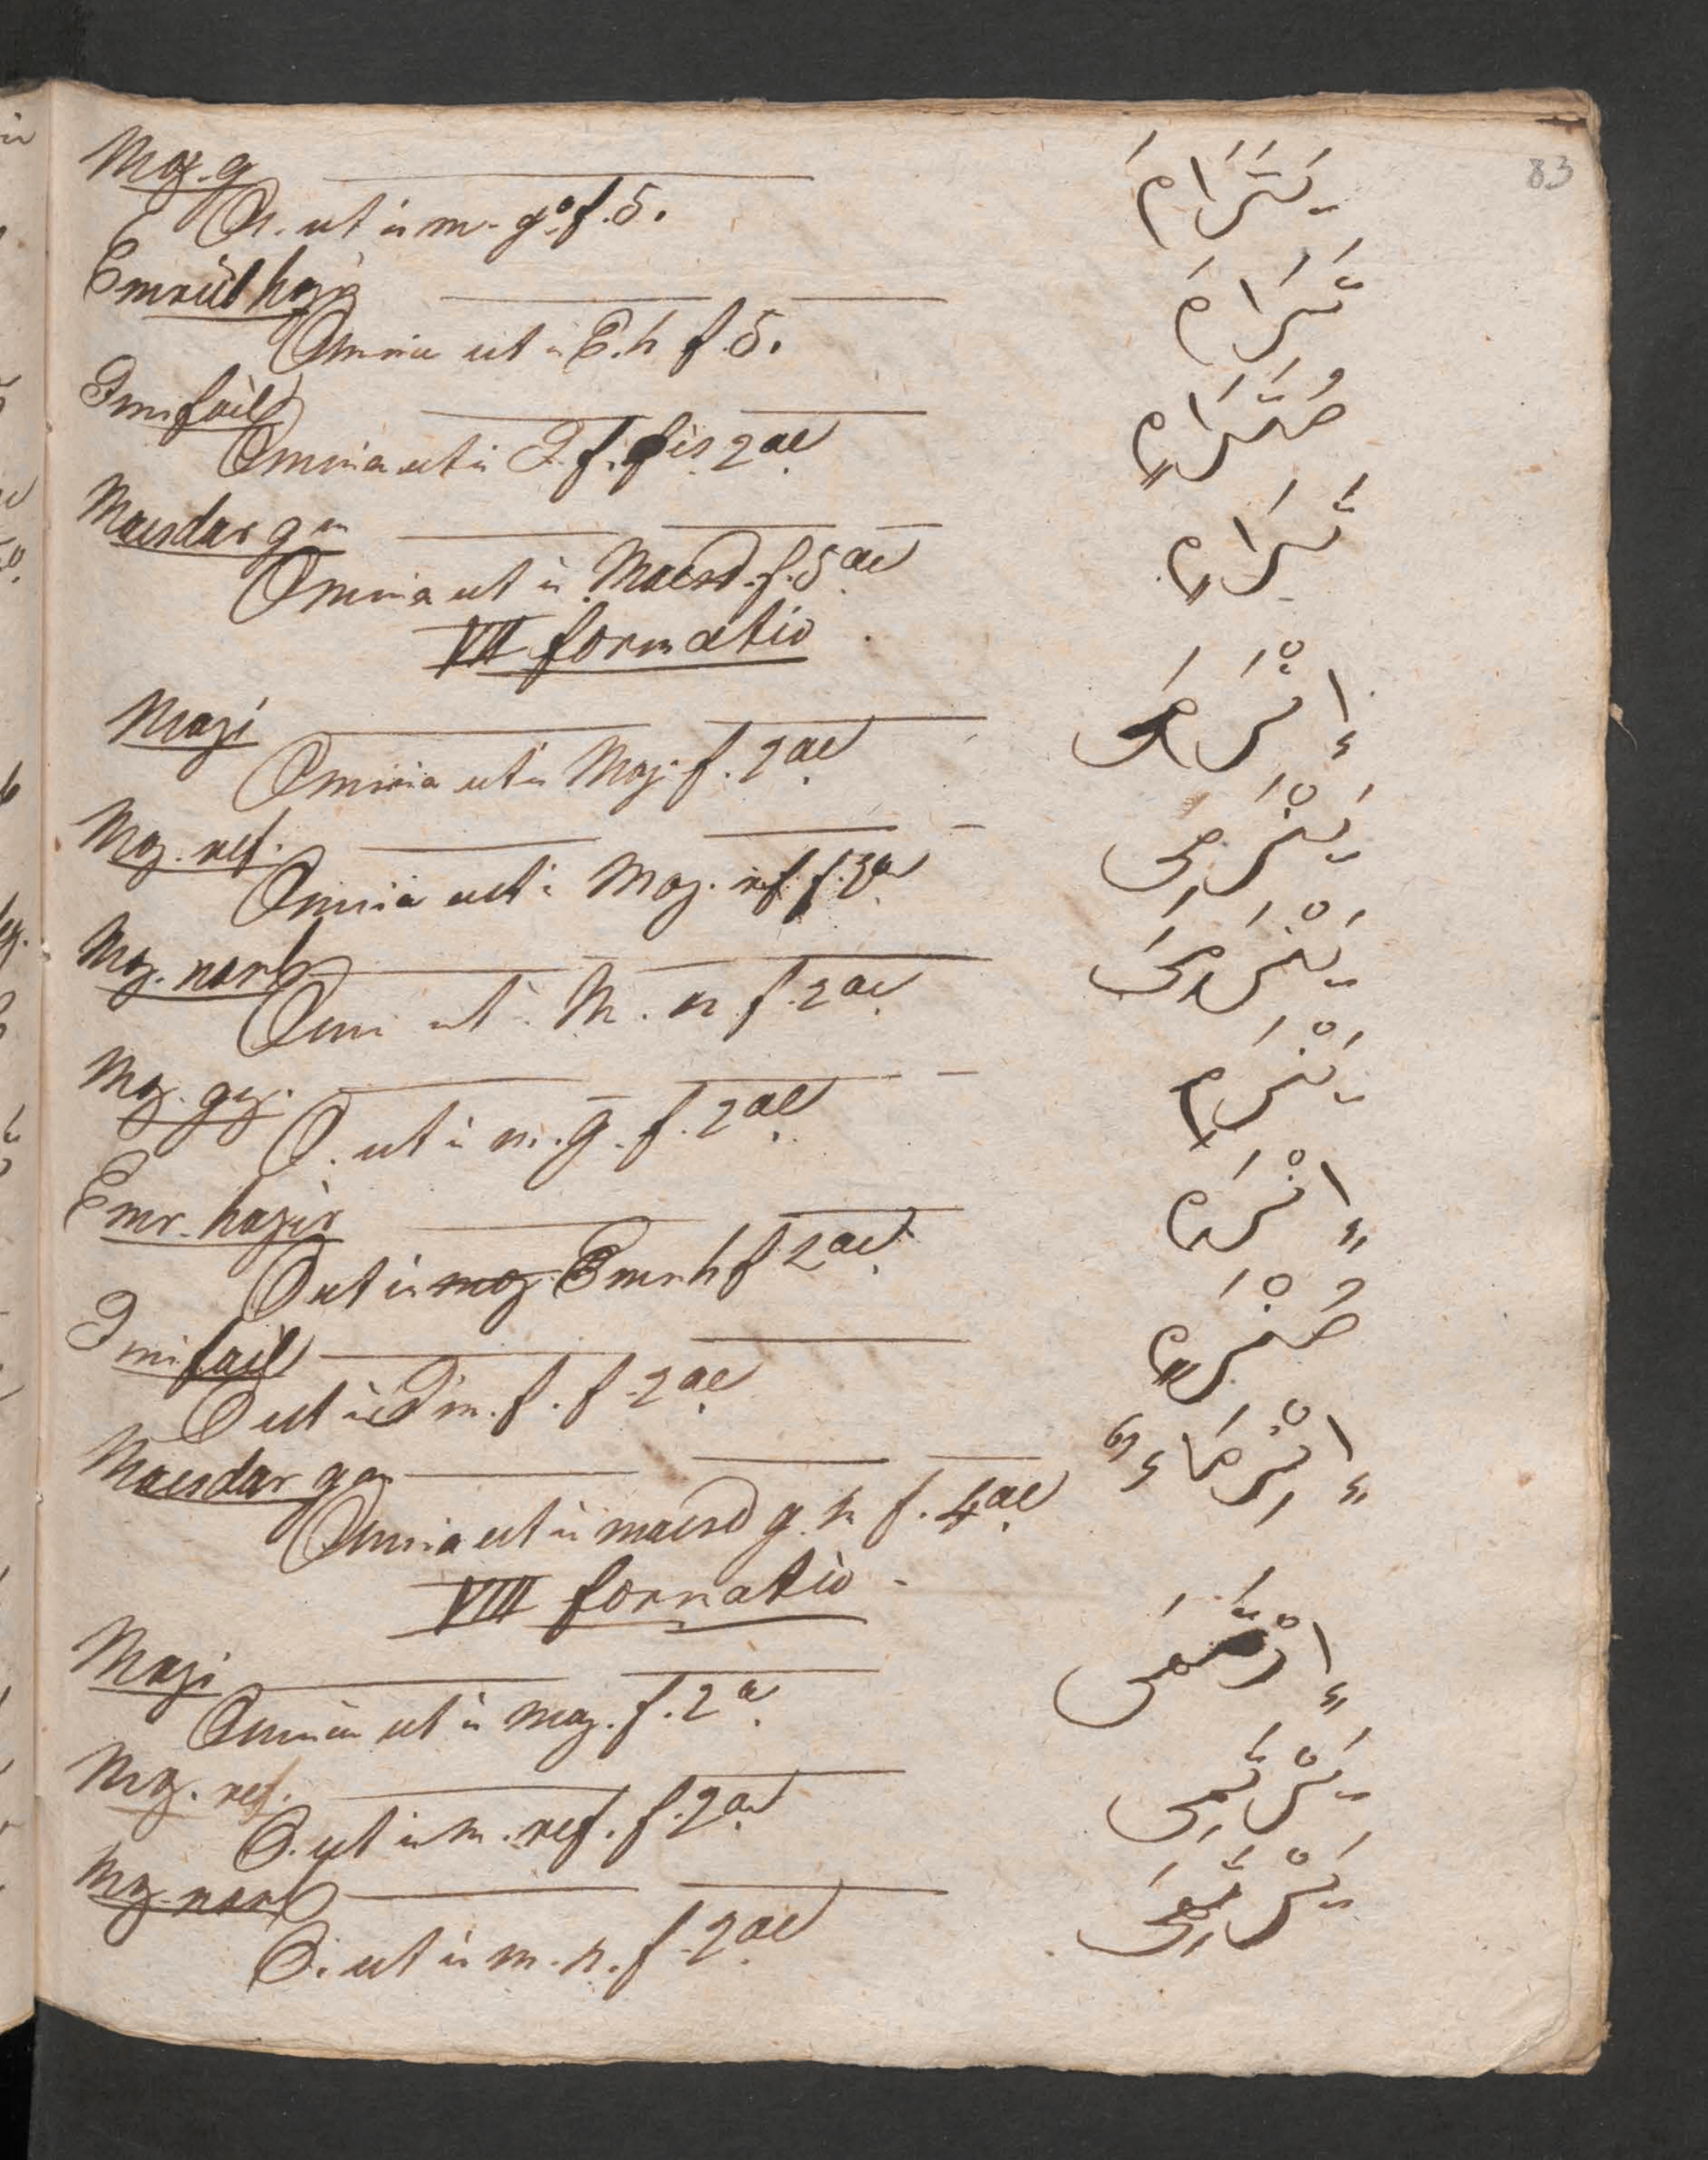 83
Moz. g يَتَرَامَ
O. ut in m. g. f. 5.
Emrül hazir تَرَامَ
Omnia ut in E. h f. 5.
Ism fail مُتَرَامٍ
Omnia ut in I. f. f 2ae
Maesdar g m تَرَامٍ
Omnia ut in Maesd. f. 5ae
VII formatio
Mazi إِنْرَمَى
Omnia ut in Maz. f. 2ae
Moz. ref. يَنْرَمِى
Omnia ut in Moz. ref f. 2ae
Moz. nasb يَنْرَمِىَ
Omn ut in M. n. f. 2ae
Moz. gez. يَنْرَمِ
O. ut in m. g. f. 2ae
Emr. hazir اِنْرَمِ
O ut in moz Emr h f 2ae
Ism fail مُنْرَمٍ
O ut in Ism. f. f. 2ae
Maesdar g m اِنْرِمَاءٌ
Omnia ut in maesd g. m f. 4ae
VIII formatio
Mazi اِرْتَمَى
Omnia ut in maz. f. 2ae
Moz. ref. يَرْتَمِى
O. ut in m. ref. f. 2ae
Moz. nasb يَرْتَمِىَ
O. ut in m. n. f. 2ae